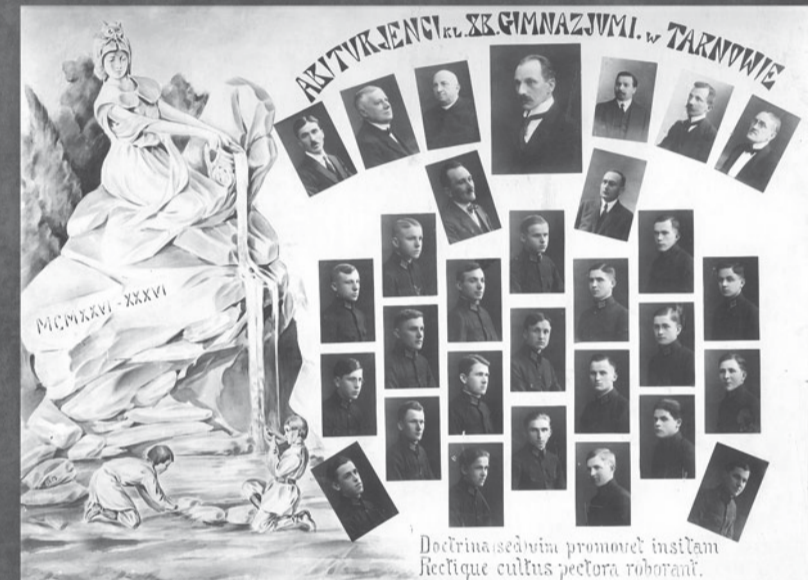 ABITVRJENCI KL. XB. GIMNAZJVMI. w TARNOWIE
MCMXXVI - XXXVI
Doctrina sed vim promovet insitam
Rectique cultus pectora roborant.